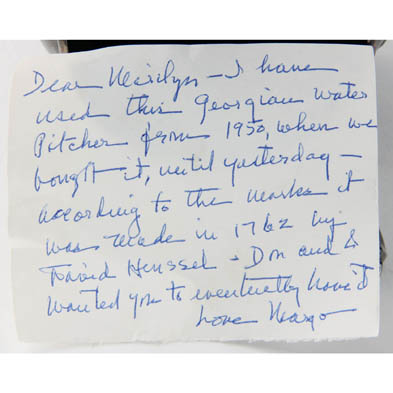 Dear Marilyn — I have
used this Georgian water
Pitcher from 1950, when we
bought it, until yesterday —
according to the marks it
was made in 1762 by
David Hennssel - Don and I
wanted you to eventually have it
Love Margo